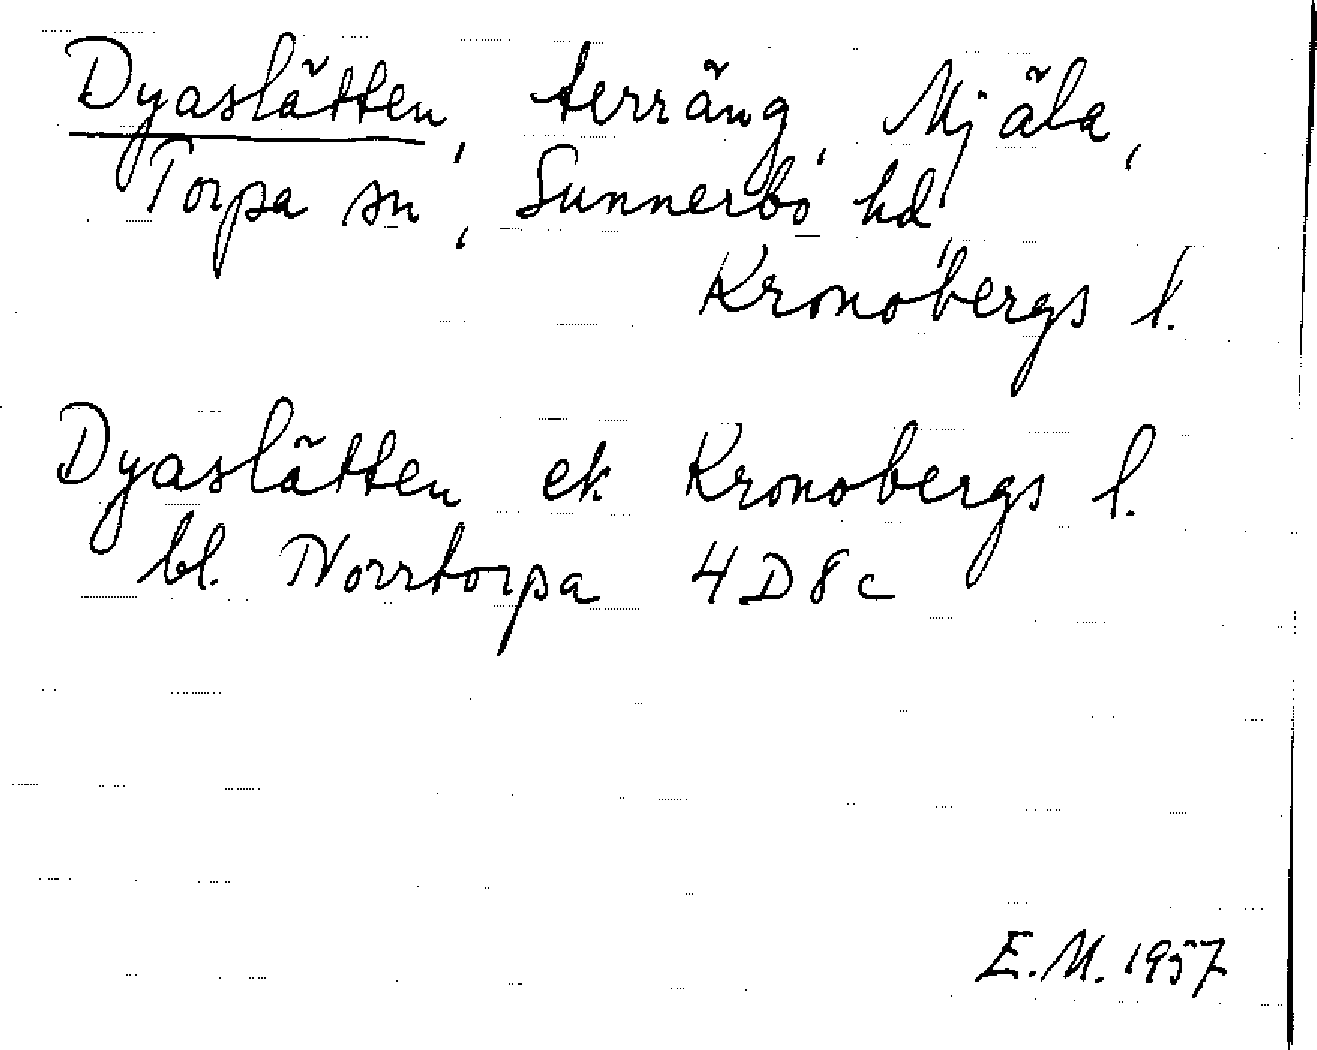 Dyaslätten, terräng, Mjäla,
Torpa sn, Sunnerbo hd,
Kronobergs l.
Dyaslätten ek Kronobergs l.
bl. Norrtorpa 4D8c
E.M. 1957